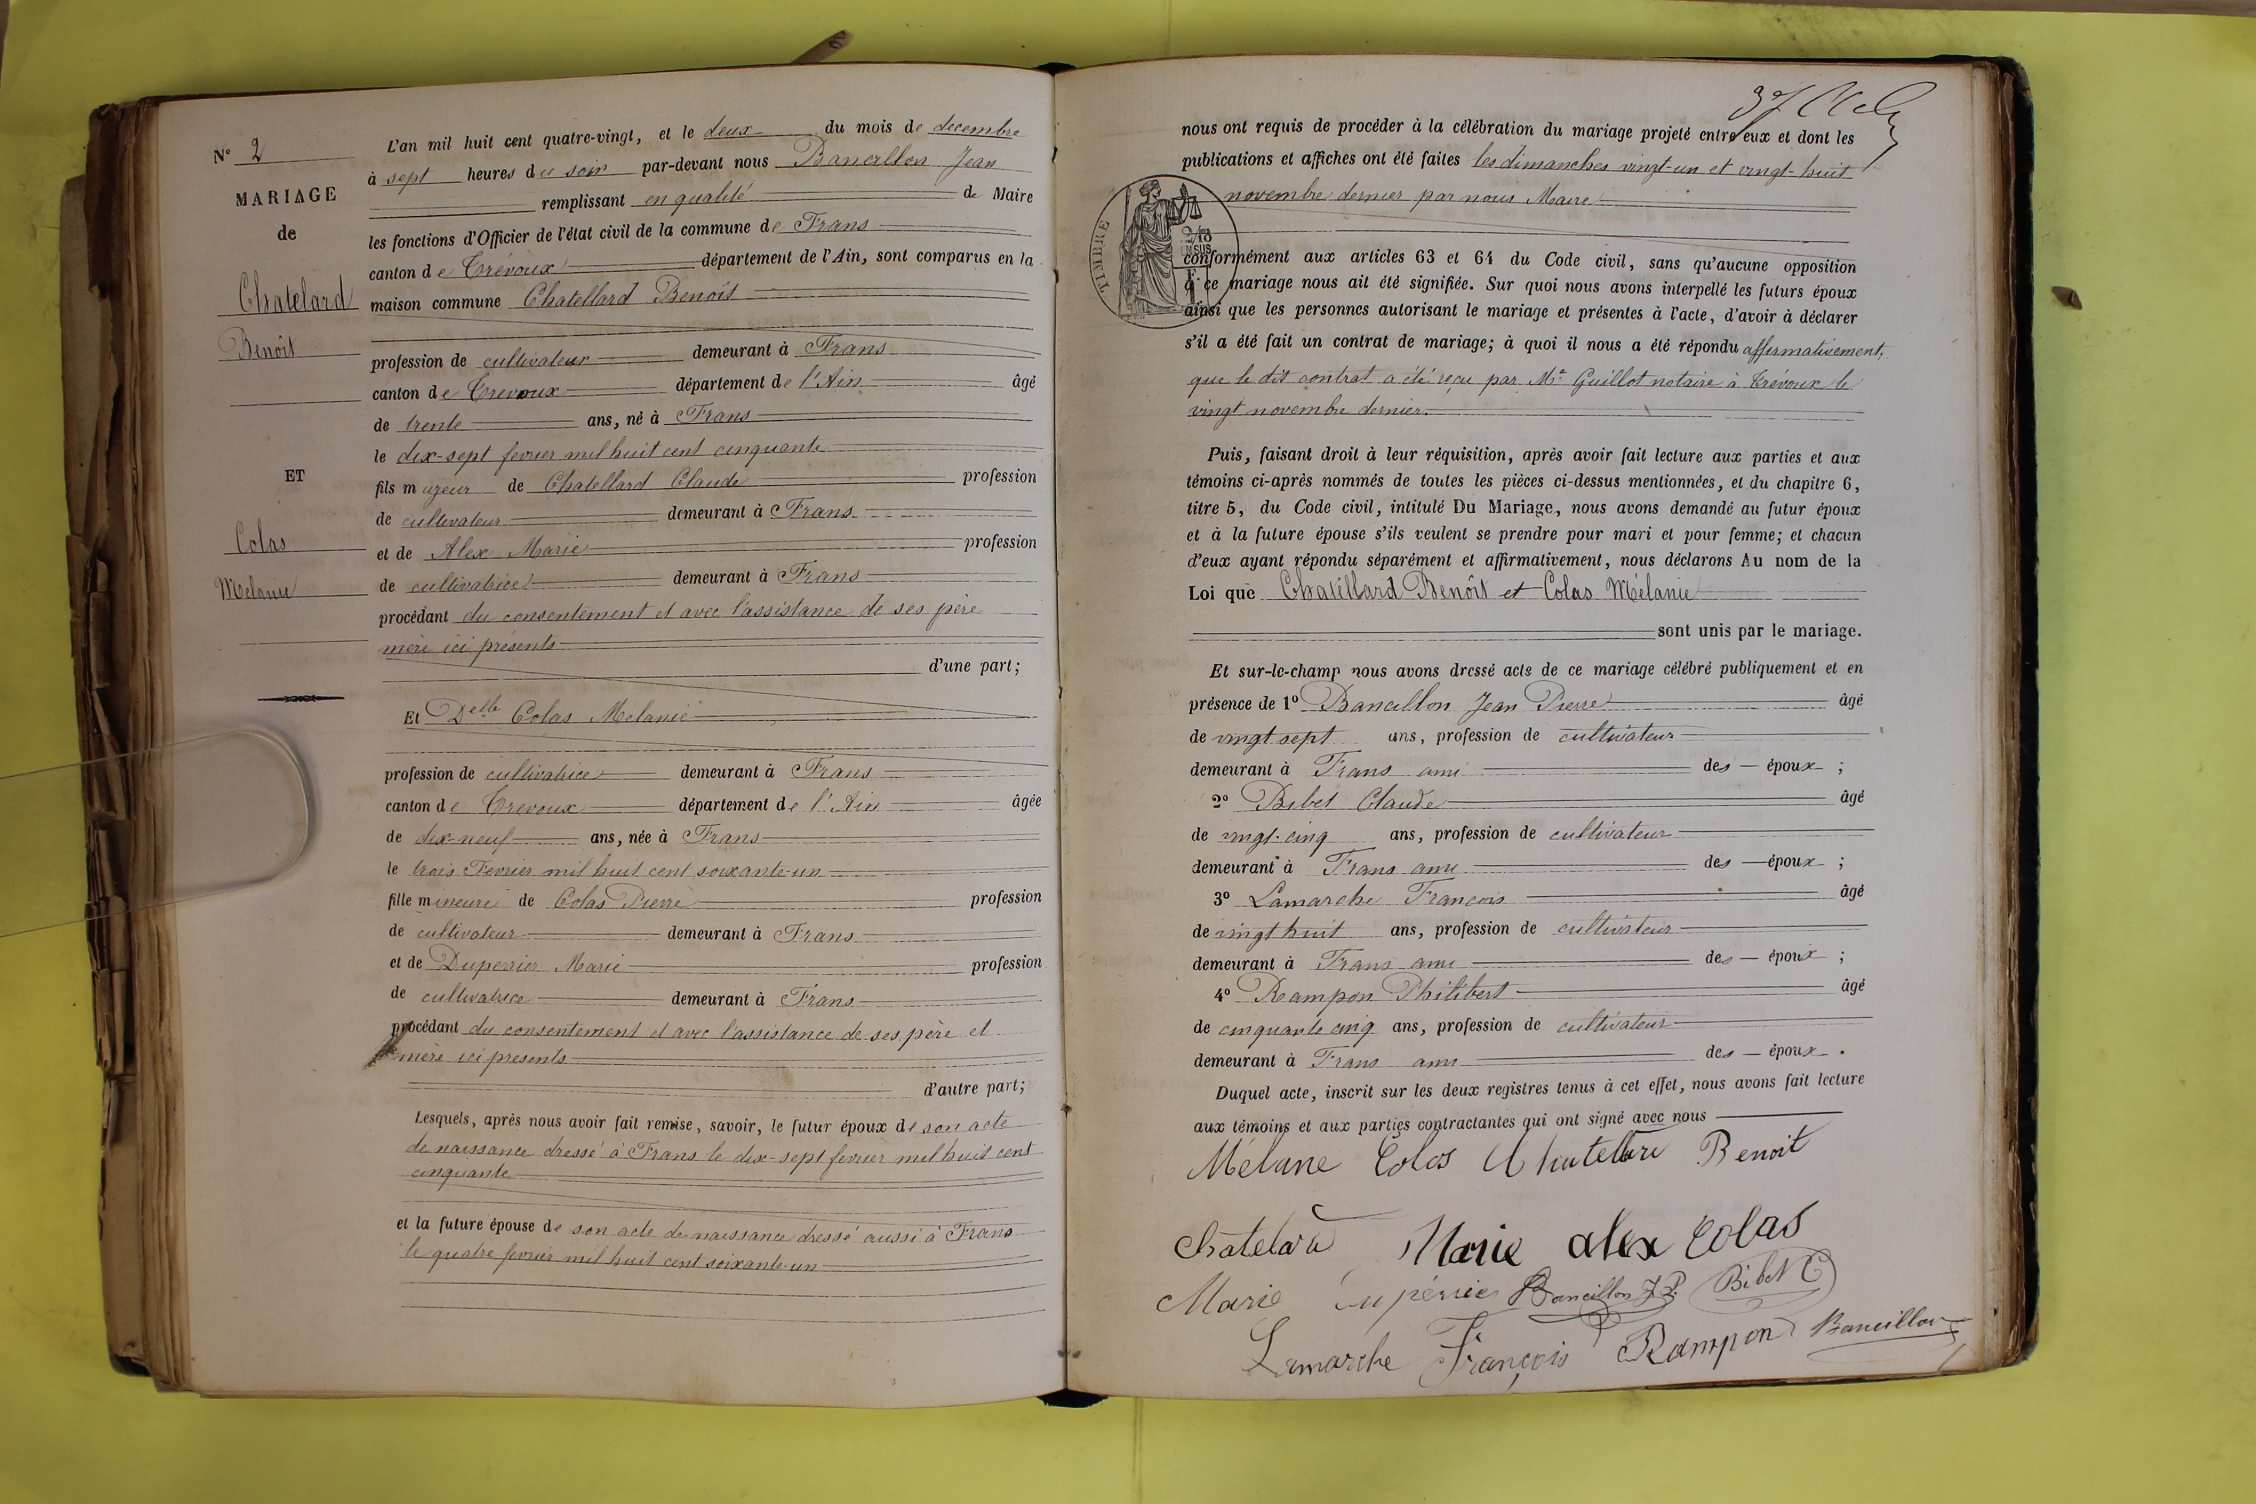 N° 2
MARIAGE
de
Chatelard
Benoît
ET
Colas
Mélanie
L'an mil huit cent quatre-vingt, et le deux du mois de decembre
à sept heures du soir par-devant nous Bancillon Jean
remplissant en qualité de Maire
les fonctions d'Officier de l'état civil de la commune de Frans
canton de Trévoux département de l'Ain, sont comparus en la
maison commune Chatellard Benoît
profession de cultivateur demeurant à Frans
canton de Trevoux département de l'Ain âgé
de trente ans, né à Frans
le dix-sept fevrier mil huit cent cinquante
fils majeur de Chatellard Claude profession
de cultivateur demeurant à Frans
et de Alex Marie profession
de cultivatrice demeurant à Frans
procédant du consentement et avec l'assistance de ses père
mère ici présents
d'une part;
Et Delle Colas Mélanie
profession de cultivatrice demeurant à Frans
canton de Trevoux département de l'Ain âgée
de dix-neuf ans, née à Frans
le trois Fevrier mil huit cent soixante-un
fille mineure de Colas Pierre profession
de cultivateur demeurant à Frans
et de Duperrier Marie profession
de cultivatrice demeurant à Frans
procédant du consentement et avec l'assistance de ses père et
mère ici présents
d'autre part;
Lesquels, après nous avoir fait remise, savoir, le futur époux de son acte
de naissance dressé à Frans le dix-sept fevrier mil huit cent
cinquante
et la future épouse de son acte de naissance dressé aussi à Frans
le quatre fevrier mil huit cent soixante-un
37
nous ont requis de procéder à la célébration du mariage projeté entre eux et dont les
publications et affiches ont été faites les dimanches vingt-un et vingt-huit
novembre dernier par nous Maire
TIMBRE
conformément aux articles 63 et 64 du Code civil, sans qu'aucune opposition
à ce mariage nous ait été signifiée. Sur quoi nous avons interpellé les futurs époux
ainsi que les personnes autorisant le mariage et présentes à l'acte, d'avoir à déclarer
s'il a été fait un contrat de mariage; à quoi il nous a été répondu affirmativement,
que le dit contrat a été reçu par Me Guillot notaire à Trévoux le
vingt novembre dernier.
Puis, faisant droit à leur réquisition, après avoir fait lecture aux parties et aux
témoins ci-après nommés de toutes les pièces ci-dessus mentionnées, et du chapitre 6,
titre 5, du Code civil, intitulé Du Mariage, nous avons demandé au futur époux
et à la future épouse s'ils veulent se prendre pour mari et pour femme; et chacun
d'eux ayant répondu séparément et affirmativement, nous déclarons Au nom de la
Loi que Chatellard Benoît et Colas Mélanie
sont unis par le mariage.
Et sur-le-champ nous avons dressé acte de ce mariage célébré publiquement et en
présence de 1° Bancillon Jean Pierre âgé
de vingt sept ans, profession de cultivateur
demeurant à Frans ami des époux ;
2° Bibet Claude âgé
de vingt-cinq ans, profession de cultivateur
demeurant à Frans ami des époux ;
3° Lamarche François âgé
de vingt huit ans, profession de cultivateur
demeurant à Frans ami des époux ;
4° Rampon Philibert âgé
de cinquante cinq ans, profession de cultivateur
demeurant à Frans ami des époux .
Duquel acte, inscrit sur les deux registres tenus à cet effet, nous avons fait lecture
aux témoins et aux parties contractantes qui ont signé avec nous
Mélanie Colas Chatelard Benoit
Chatelard Marie alex Colas
Marie Dupérier Bancillon J P. Bibet C
Lamarche François Rampon Bancillon